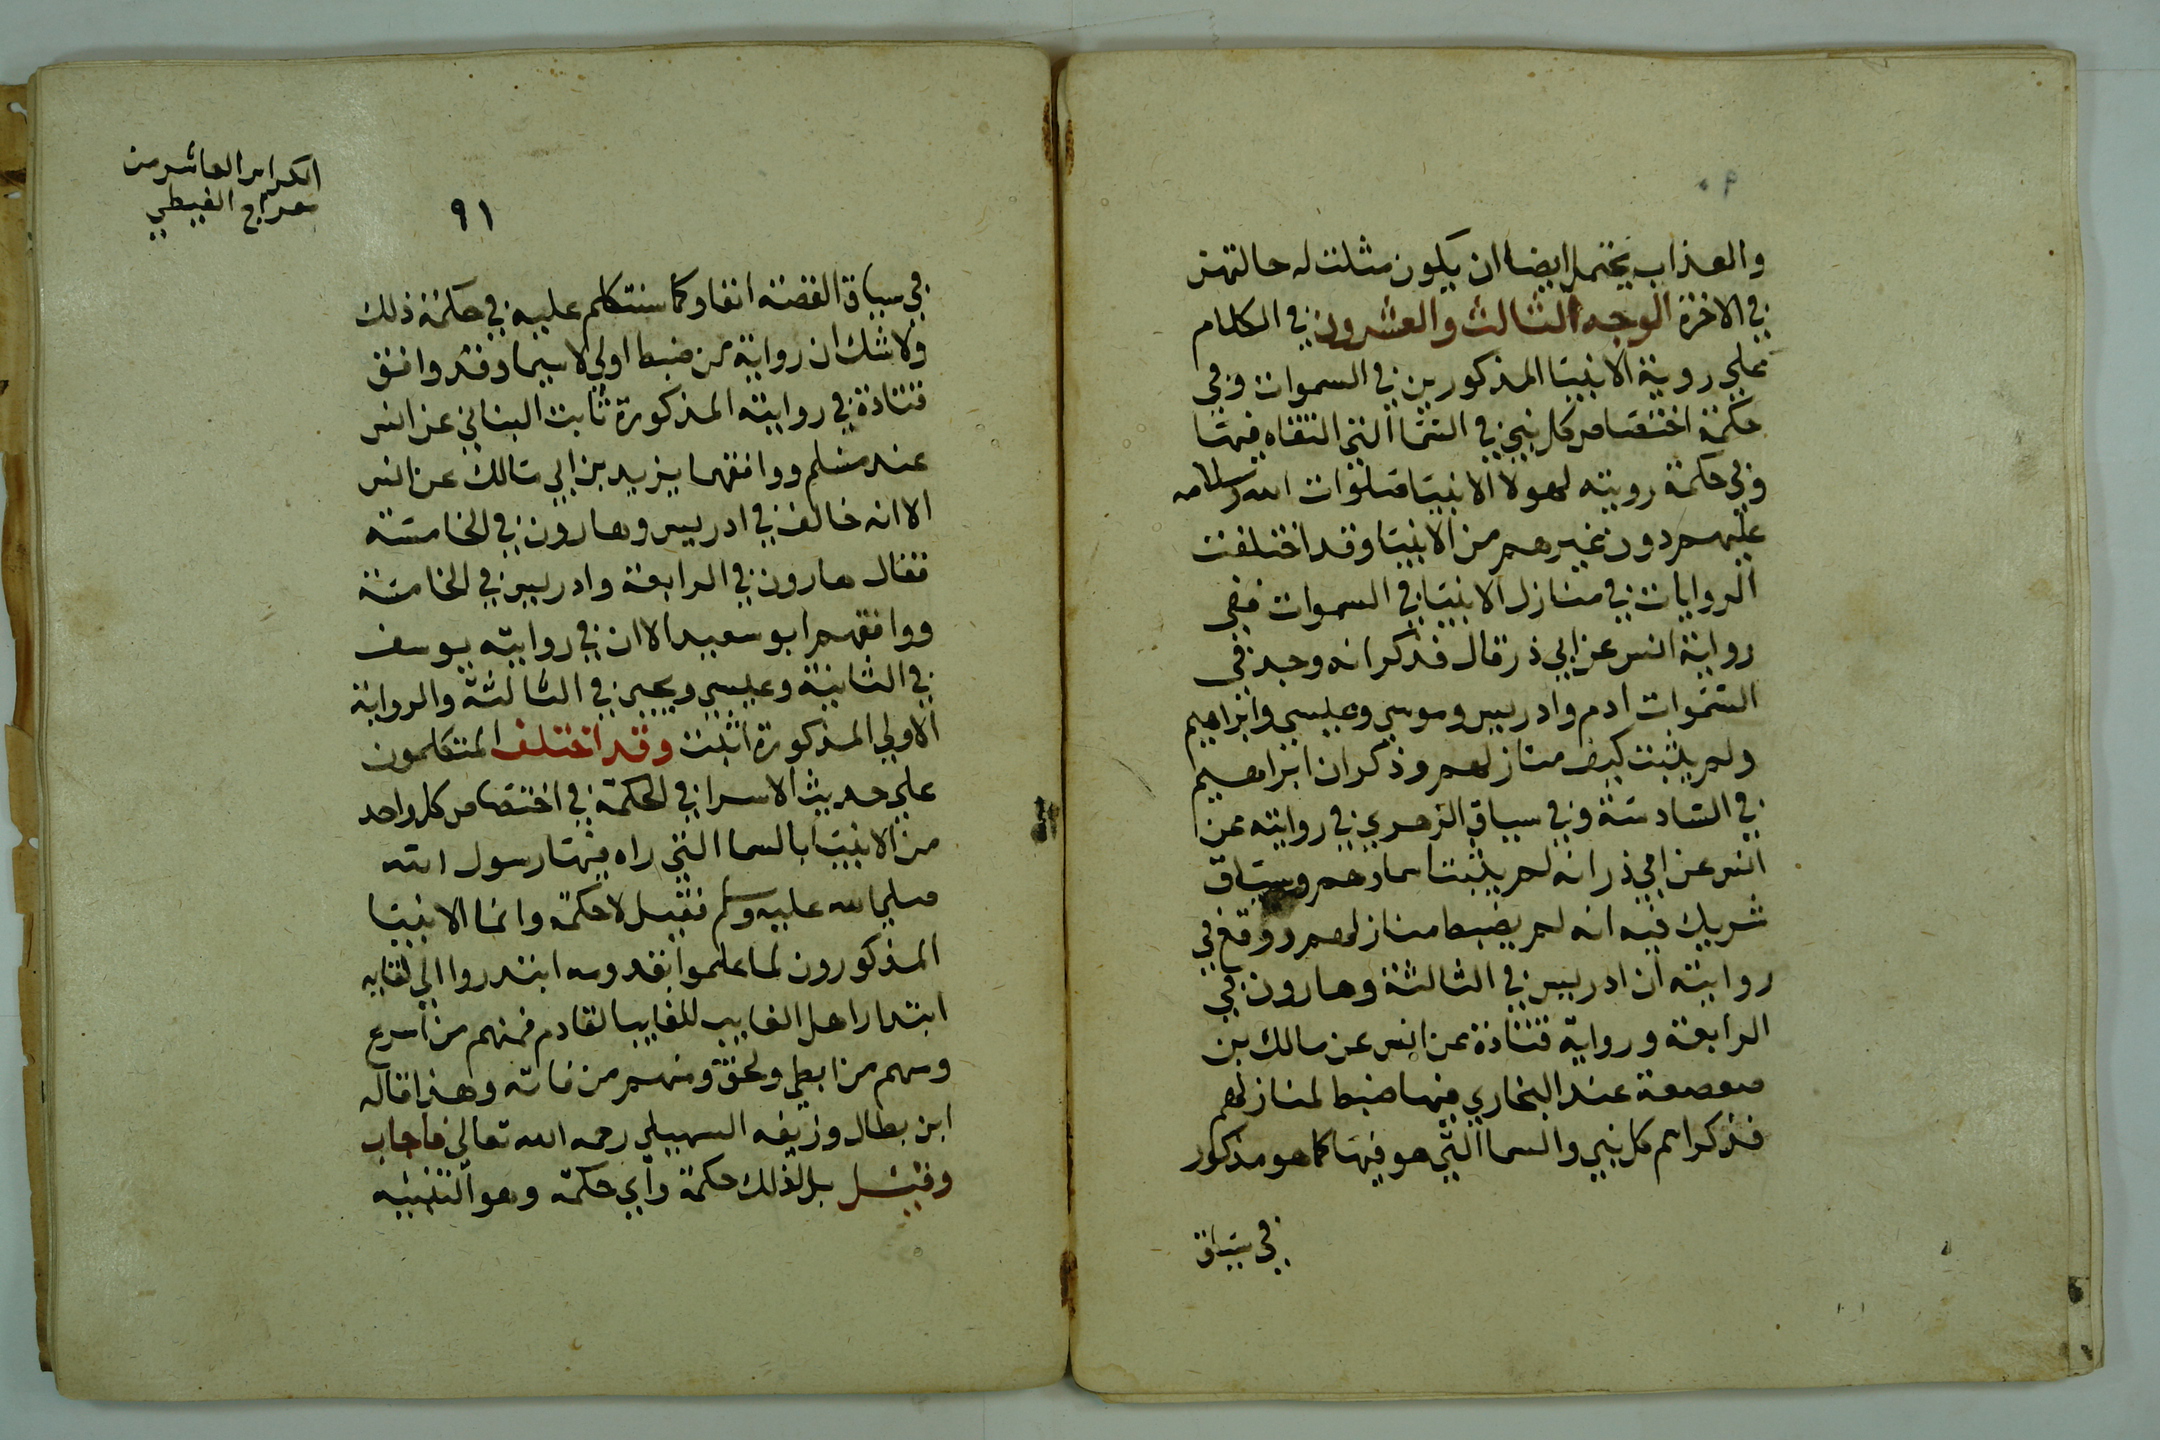 ٩٠
والعذاب يحتمل ايضا ان يكون مثلت له حالتهن
في الاخرة الوجه الثالث والعشرون في الكلام
علي روية الانبيا المذكورين في السموات وفي
حكمة اختصاص كل نبي في السما التي التقاه فيها
وفي حكمة رويته لهولا الانبيا صلوات الله وسلامه
عليهم دون غيرهم من الانبيا وقد اختلفت
الروايات في منازل الانبيا في السموات ففي
رواية انس عن ابي ذر قال فذكر انه وجد في
السموات ادم وادريس وموسي وعيسي وابراهيم
ولم يثبت كيف منازلهم وذكر ان ابراهيم
في السادسة وفي سياق الزهري في روايته عن
انس عن ابي ذر انه لم يثبت اسماوهم وسياق
شريك فيه انه لم يضبط منازلهم ووقع في
روايته ان ادريس في الثالثة وهارون في
الرابعة ورواية قتادة عن انس عن مالك بن
صعصعة عند البخاري فيها ضبط لمنازلهم
فذكر اسم كل نبي والسما التي هو فيها كما هو مذكور
في سياق
الكراس العاشر من
معراج الغيطي
٩١
في سياق القصة انفا وكما سنتكلم عليه في حكمة ذلك
ولا شك ان رواية من ضبط اولي لا سيما وقد وافق
قتادة في روايته المذكورة ثابت البناني عن انس
عند مسلم ووافقهما يزيد بن ابي مالك عن انس
الا انه خالف في ادريس وهارون في الخامسة
فقال هارون في الرابعة وادريس في الخامسة
ووافقهم ابو سعيد الا ان في روايته يوسف
في الثانية وعيسي ويحيي في الثالثة والرواية
الاولي المذكورة اثبت وقد اختلف المتكلمون
علي حديث الاسرا في الحكمة في اختصاص كل واحد
من الانبيا بالسما التي راه فيها رسول الله
صلي الله عليه وسلم فقيل لا حكمة وانما الانبيا
المذكورون لما علموا بقدومه ابتدروا الي لقايه
ابتدار اهل الغايب للغايب القادم فمنهم من اسرع
ومنهم من ابطي ولحق ومنهم من فاته وهذا قاله
ابن بطال وزيفه السهيلي رحمه الله تعالي فاجاب
وقيل بل لذلك حكمة واي حكمة وهو التنبيه